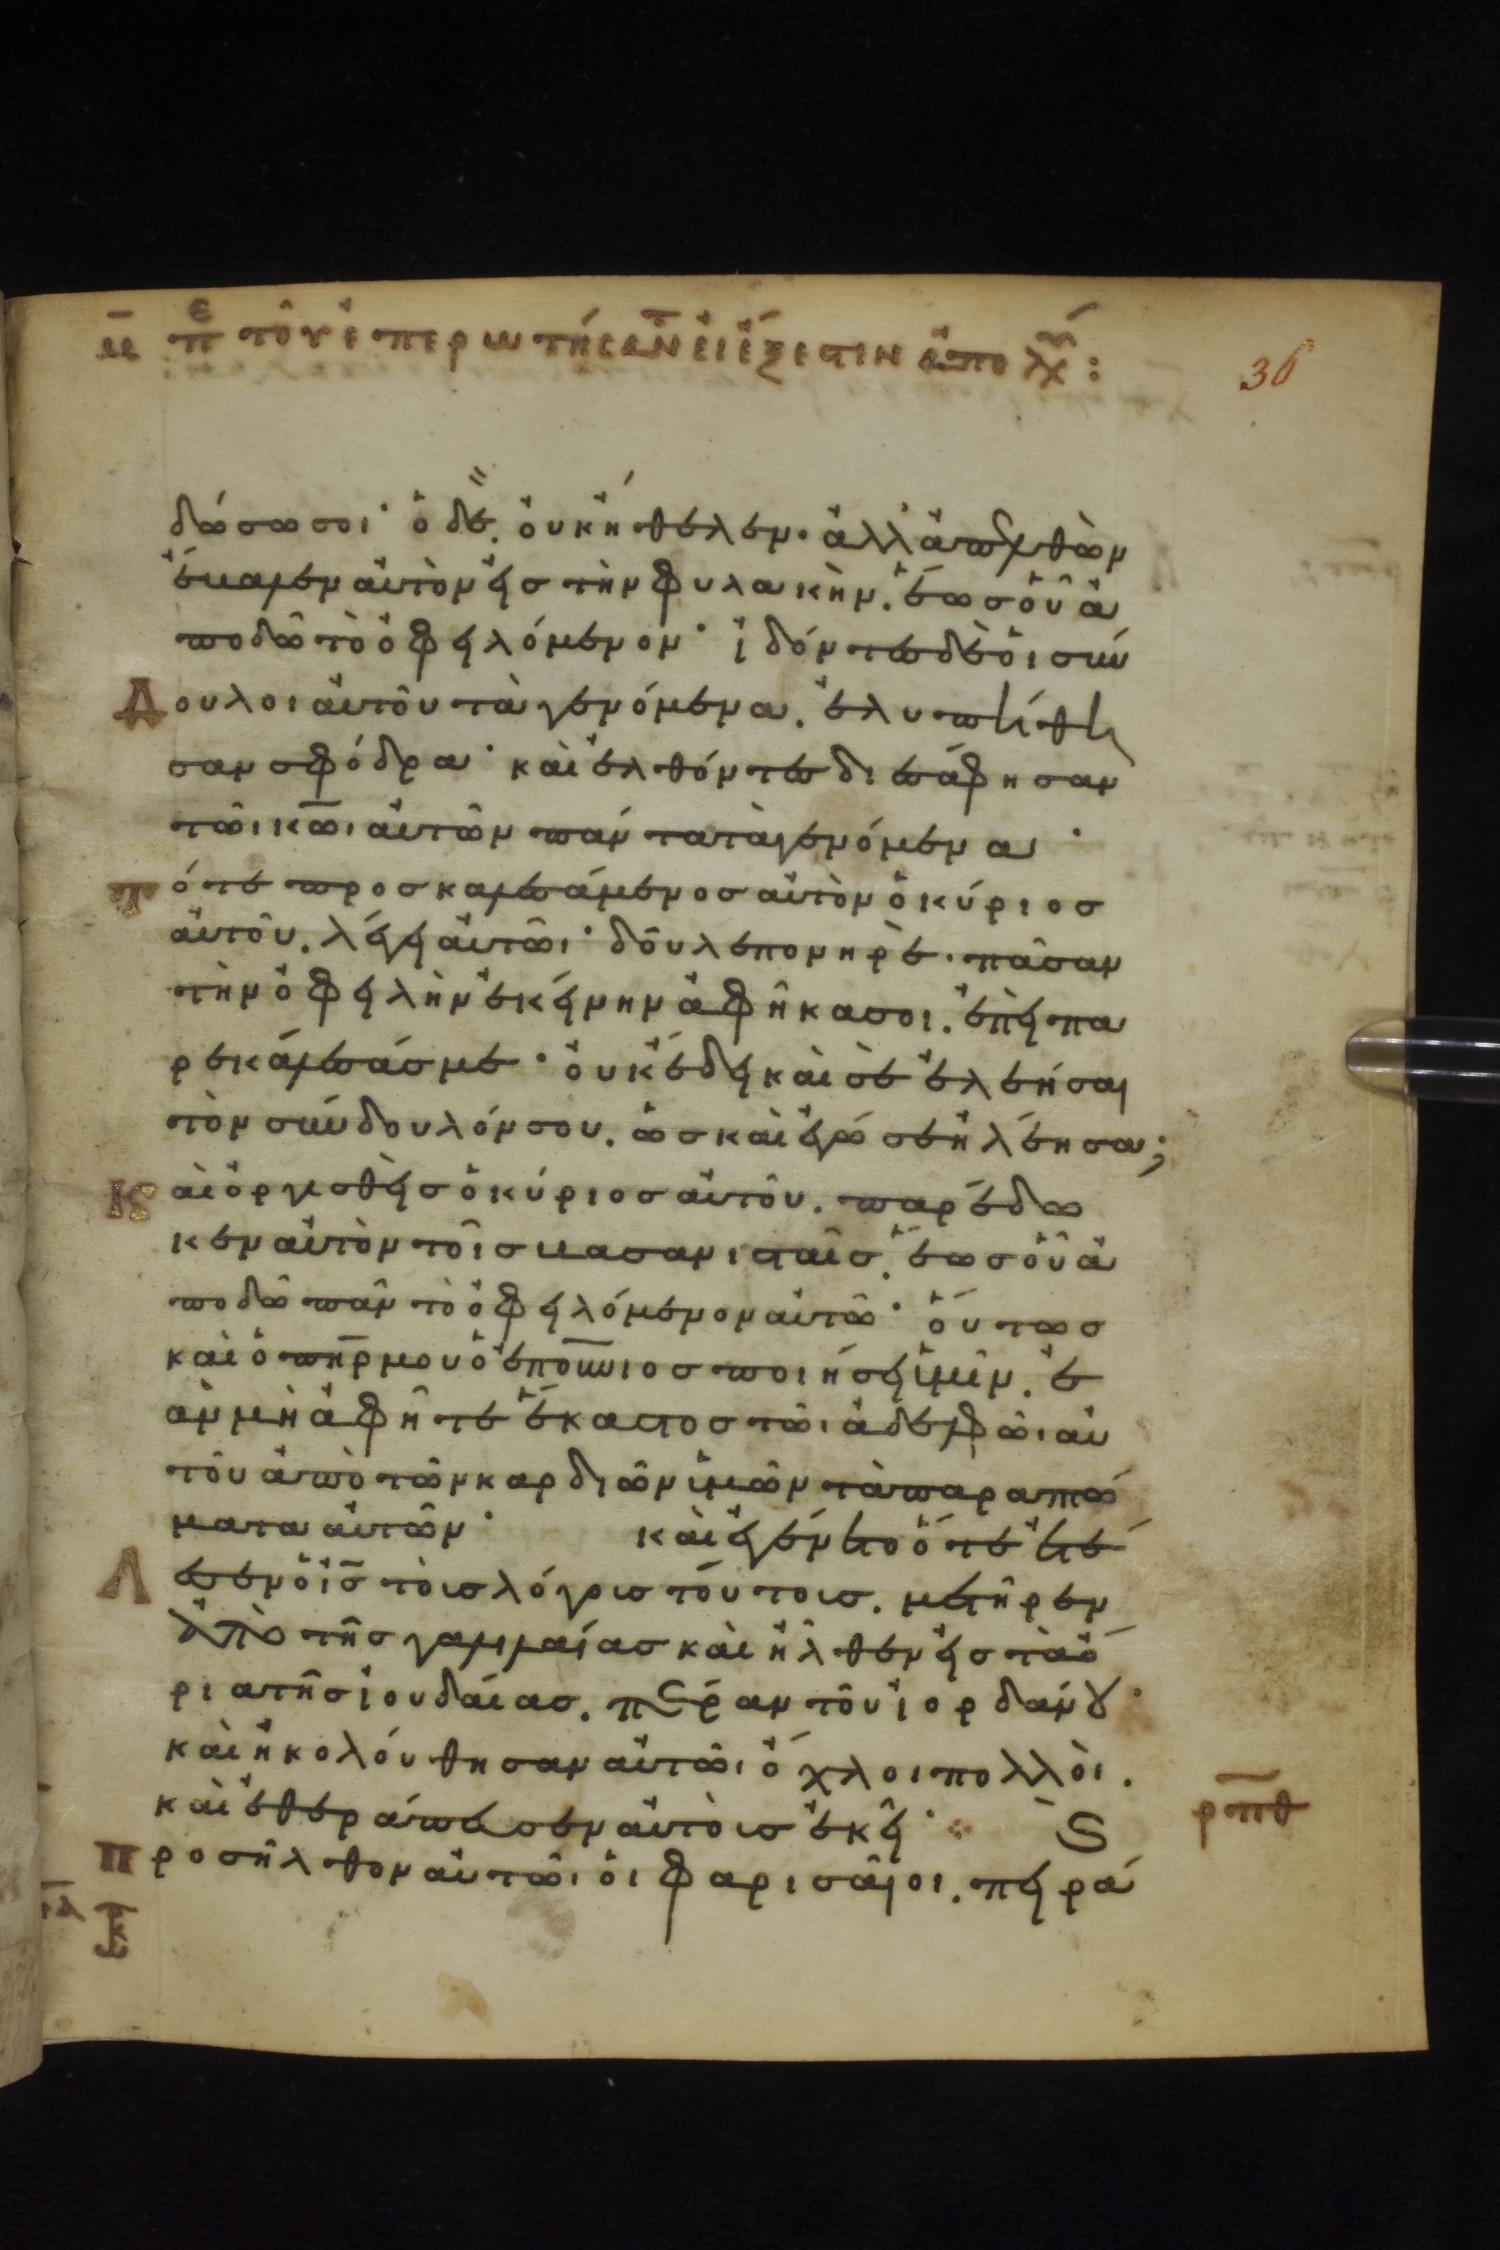 μ̅ πε τοῦ ἐπερωτήσαν εἰ ἔξεστιν ἀπολῦ :
36
δώσω σοι· ὁ δὲ. οὐκ ἤθελεν· ἀλλ' ἀπελθὼν
ἔβαλεν αὐτὸν εἰς τὴν φυλακὴν. ἕως οὗ ἀ
ποδῶ τὸ ὀφειλόμενον· ἰδόντες δὲ οἱ σύν
δουλοι αὐτοῦ τὰ γενόμενα. ἐλυπήθη
σαν σφόδρα· καὶ ἐλθόντες διεσάφησαν
τῶι κ̅ω̅ι αὐτῶν πάντα τὰ γενόμενα·
Τότε προσκαλεσάμενος αὐτὸν ὁ κύριος
αὐτοῦ. λέγει αὐτῶι· δοῦλε πονηρὲ· πᾶσαν
τὴν ὀφειλὴν ἐκείνην ἀφῆκα σοι. ἐπεὶ πα
ρεκάλεσάς με· οὐκ ἔδει καὶ σὲ ἐλεῆσαι
τὸν σύνδουλόν σου. ὡς καὶ ἐγώ σε ἠλέησα;
Καὶ ὀργισθεὶς ὁ κύριος αὐτοῦ. παρέδω
κεν αὐτὸν τοῖς βασανισταῖς. ἕως οὗ ἀ
ποδῶ πᾶν τὸ ὀφειλόμενον αὐτῶ· οὕτως
καὶ ὁ π̅η̅ρ μου ὁ ἐπο̅υ̅νιος ποιήσει ὑμῖν. ἐ
ὰν μὴ ἀφῆτε ἕκαστος τῶι ἀδελφῶι αὐ
τοῦ ἀπὸ τῶν καρδιῶν ὑμῶν τὰ παραπτώ
ματα αὐτῶν· καὶ ἐγένετο ὅτε ἐτέ
Λεσεν ὁ ἰ̅ς̅ τοὺς λόγους τούτους. μετῆρεν
ἀπὸ τῆς γαλιλαίας καὶ ἦλθεν εἰς τὰ ὅ
ρια τῆς ἰουδαίας. πέραν τοῦ ἰορδάνου·
καὶ ἠκολούθησαν αὐτῶι ὄχλοι πολλοὶ.
καὶ ἐθεράπευσεν αὐτοὺς ἐκεῖ· S ρπθ
Προσῆλθον αὐτῶι οἱ φαρισαῖοι. πειρά